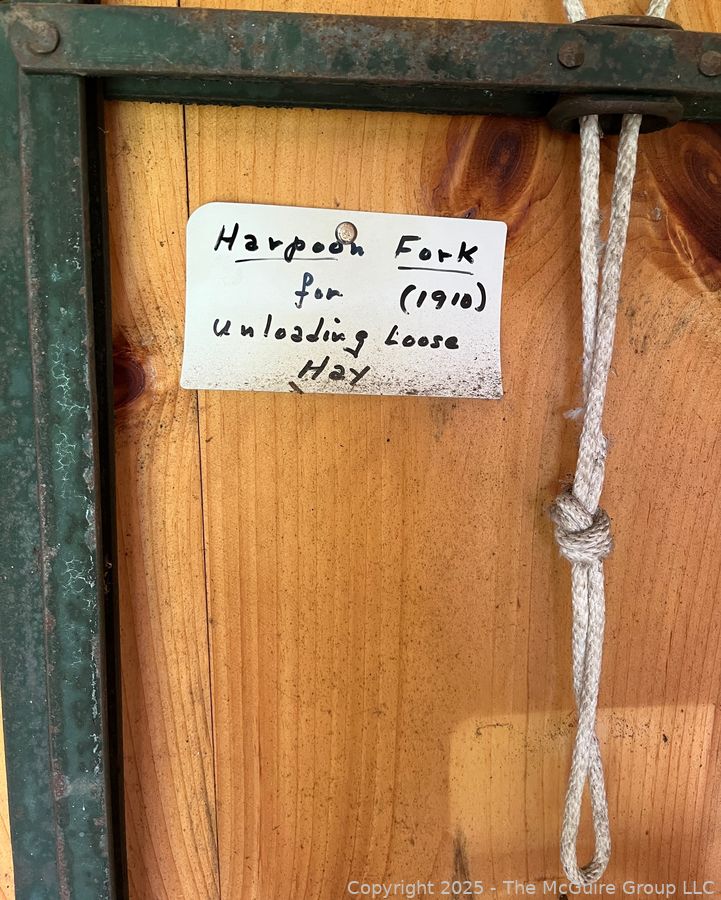 Harpoon Fork
for (1910)
unloading Loose
Hay
Copyright 2025 - The McGuire Group LLC